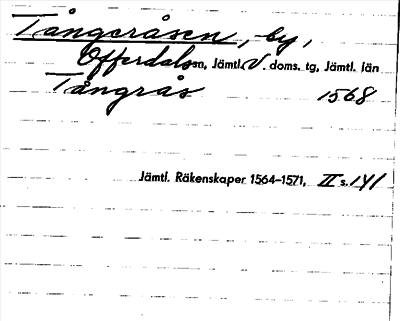 Tångeråsen, by,
Offerdals sn, Jämtl. V. doms. tg, Jämtl. län
Tångrås 1568
Jämtl. Räkenskaper 1564–1571, II s. 141